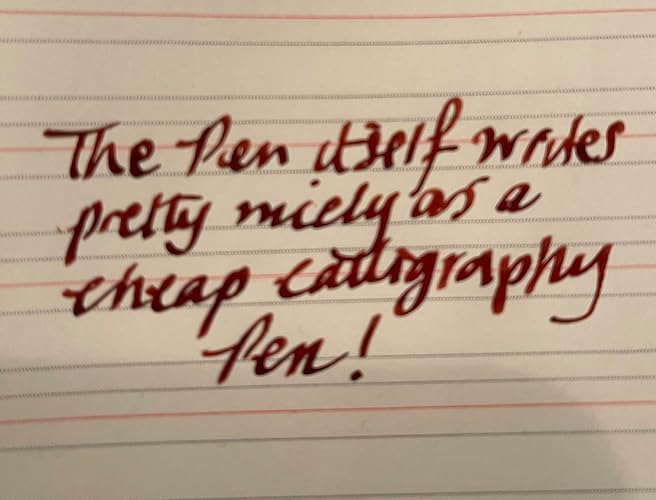 The Pen itself writes
pretty nicely as a
cheap calligraphy
Pen!